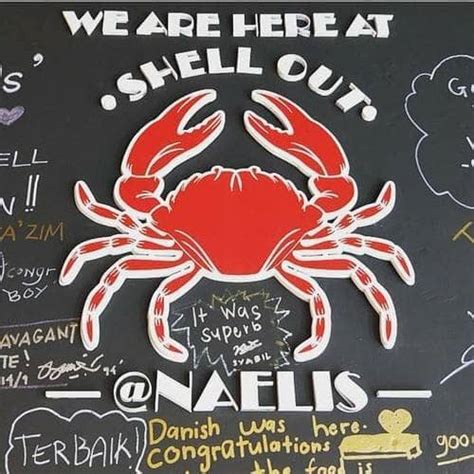 WE ARE HERE AT
• SHELL OUT •
S'
ELL
N!!
A'ZIM
CONGR
BOY
AVAGANT
TE!
14/9
It was
superb
SYABIL
@NAELIS
TERBAIK!
Danish was here.
congratulations
goo